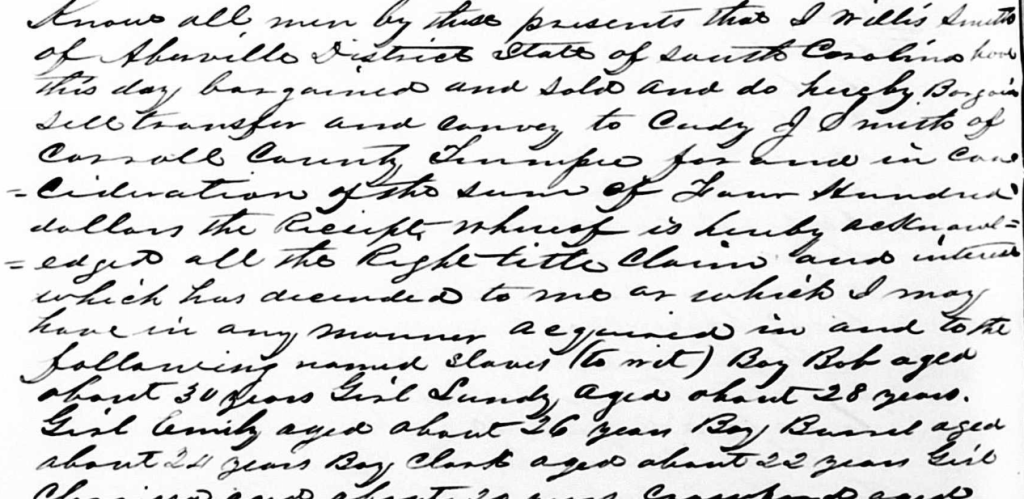 Know all men by these presents that I Willis Smith
of Aberville District State of South Carolina have
this day bargained and sold and do hereby Bargain
sell transfer and convey to Cudy J Smith of
Carroll County Tennessee for and in Con
=cideration of the sum of Four Hundred
dollars the Receipt whereof is hereby acknowl=
=edged all the Right title Claim and interest
which has decended to me or which I may
have in any manner acquired in and to the
following named slaves (to wit) Boy Bob aged
about 30 years Girl Lundy aged about 28 years.
Girl Emily aged about 26 years Boy Burrel aged
about 24 years Boy Clark aged about 22 years Girl
aged about 20 years Crawford aged